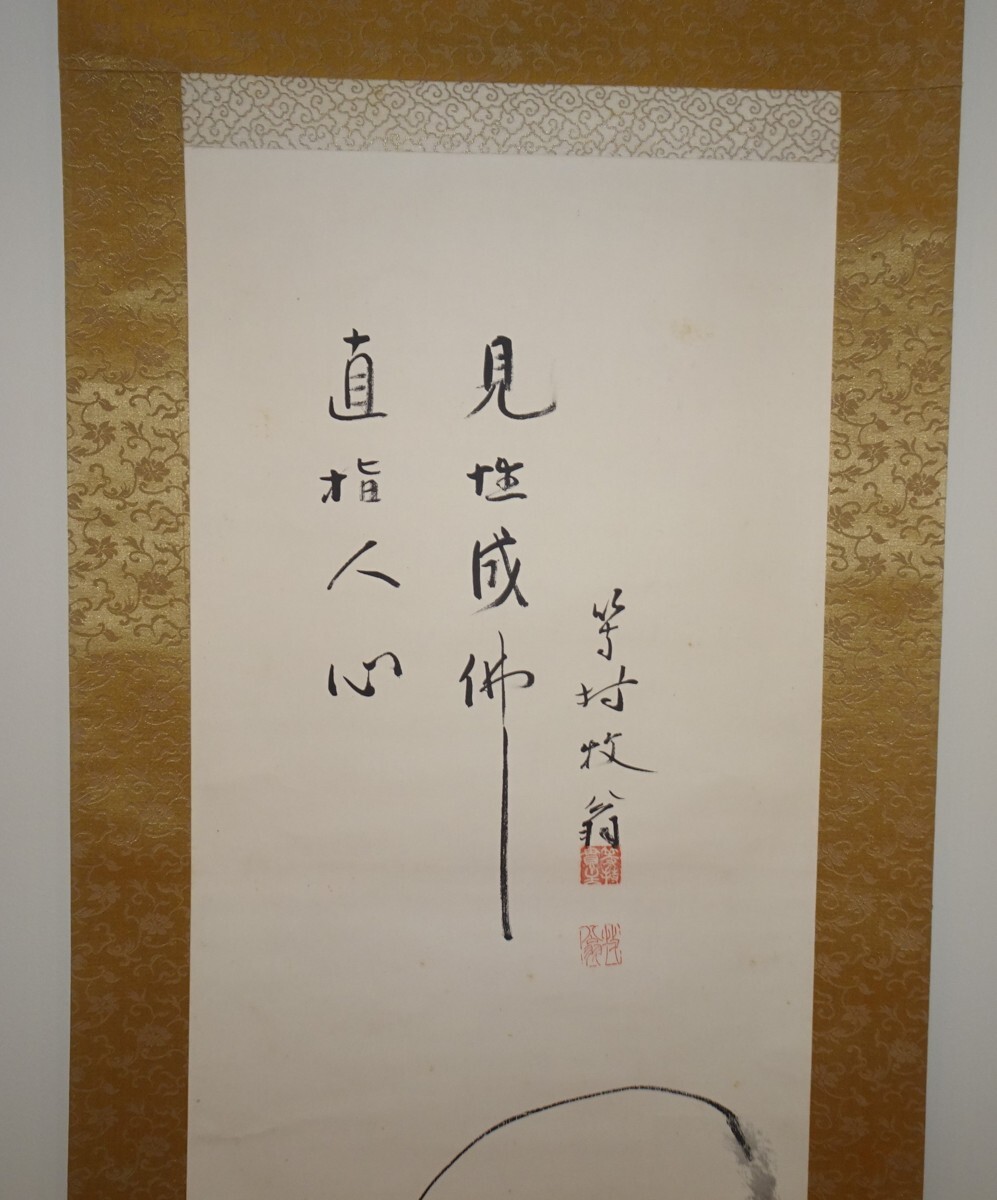 直指人心
見性成佛
等持牧翁